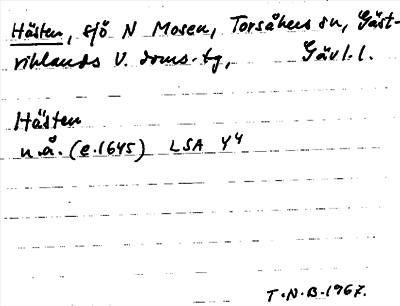 Hästen, sjö N Mosen, Torsåkers sn, Gäst-
riklands V. doms.tg, Gävl.l.
Hästen
u.å. (e.1645) LSA Y4
T.N.B.1967.